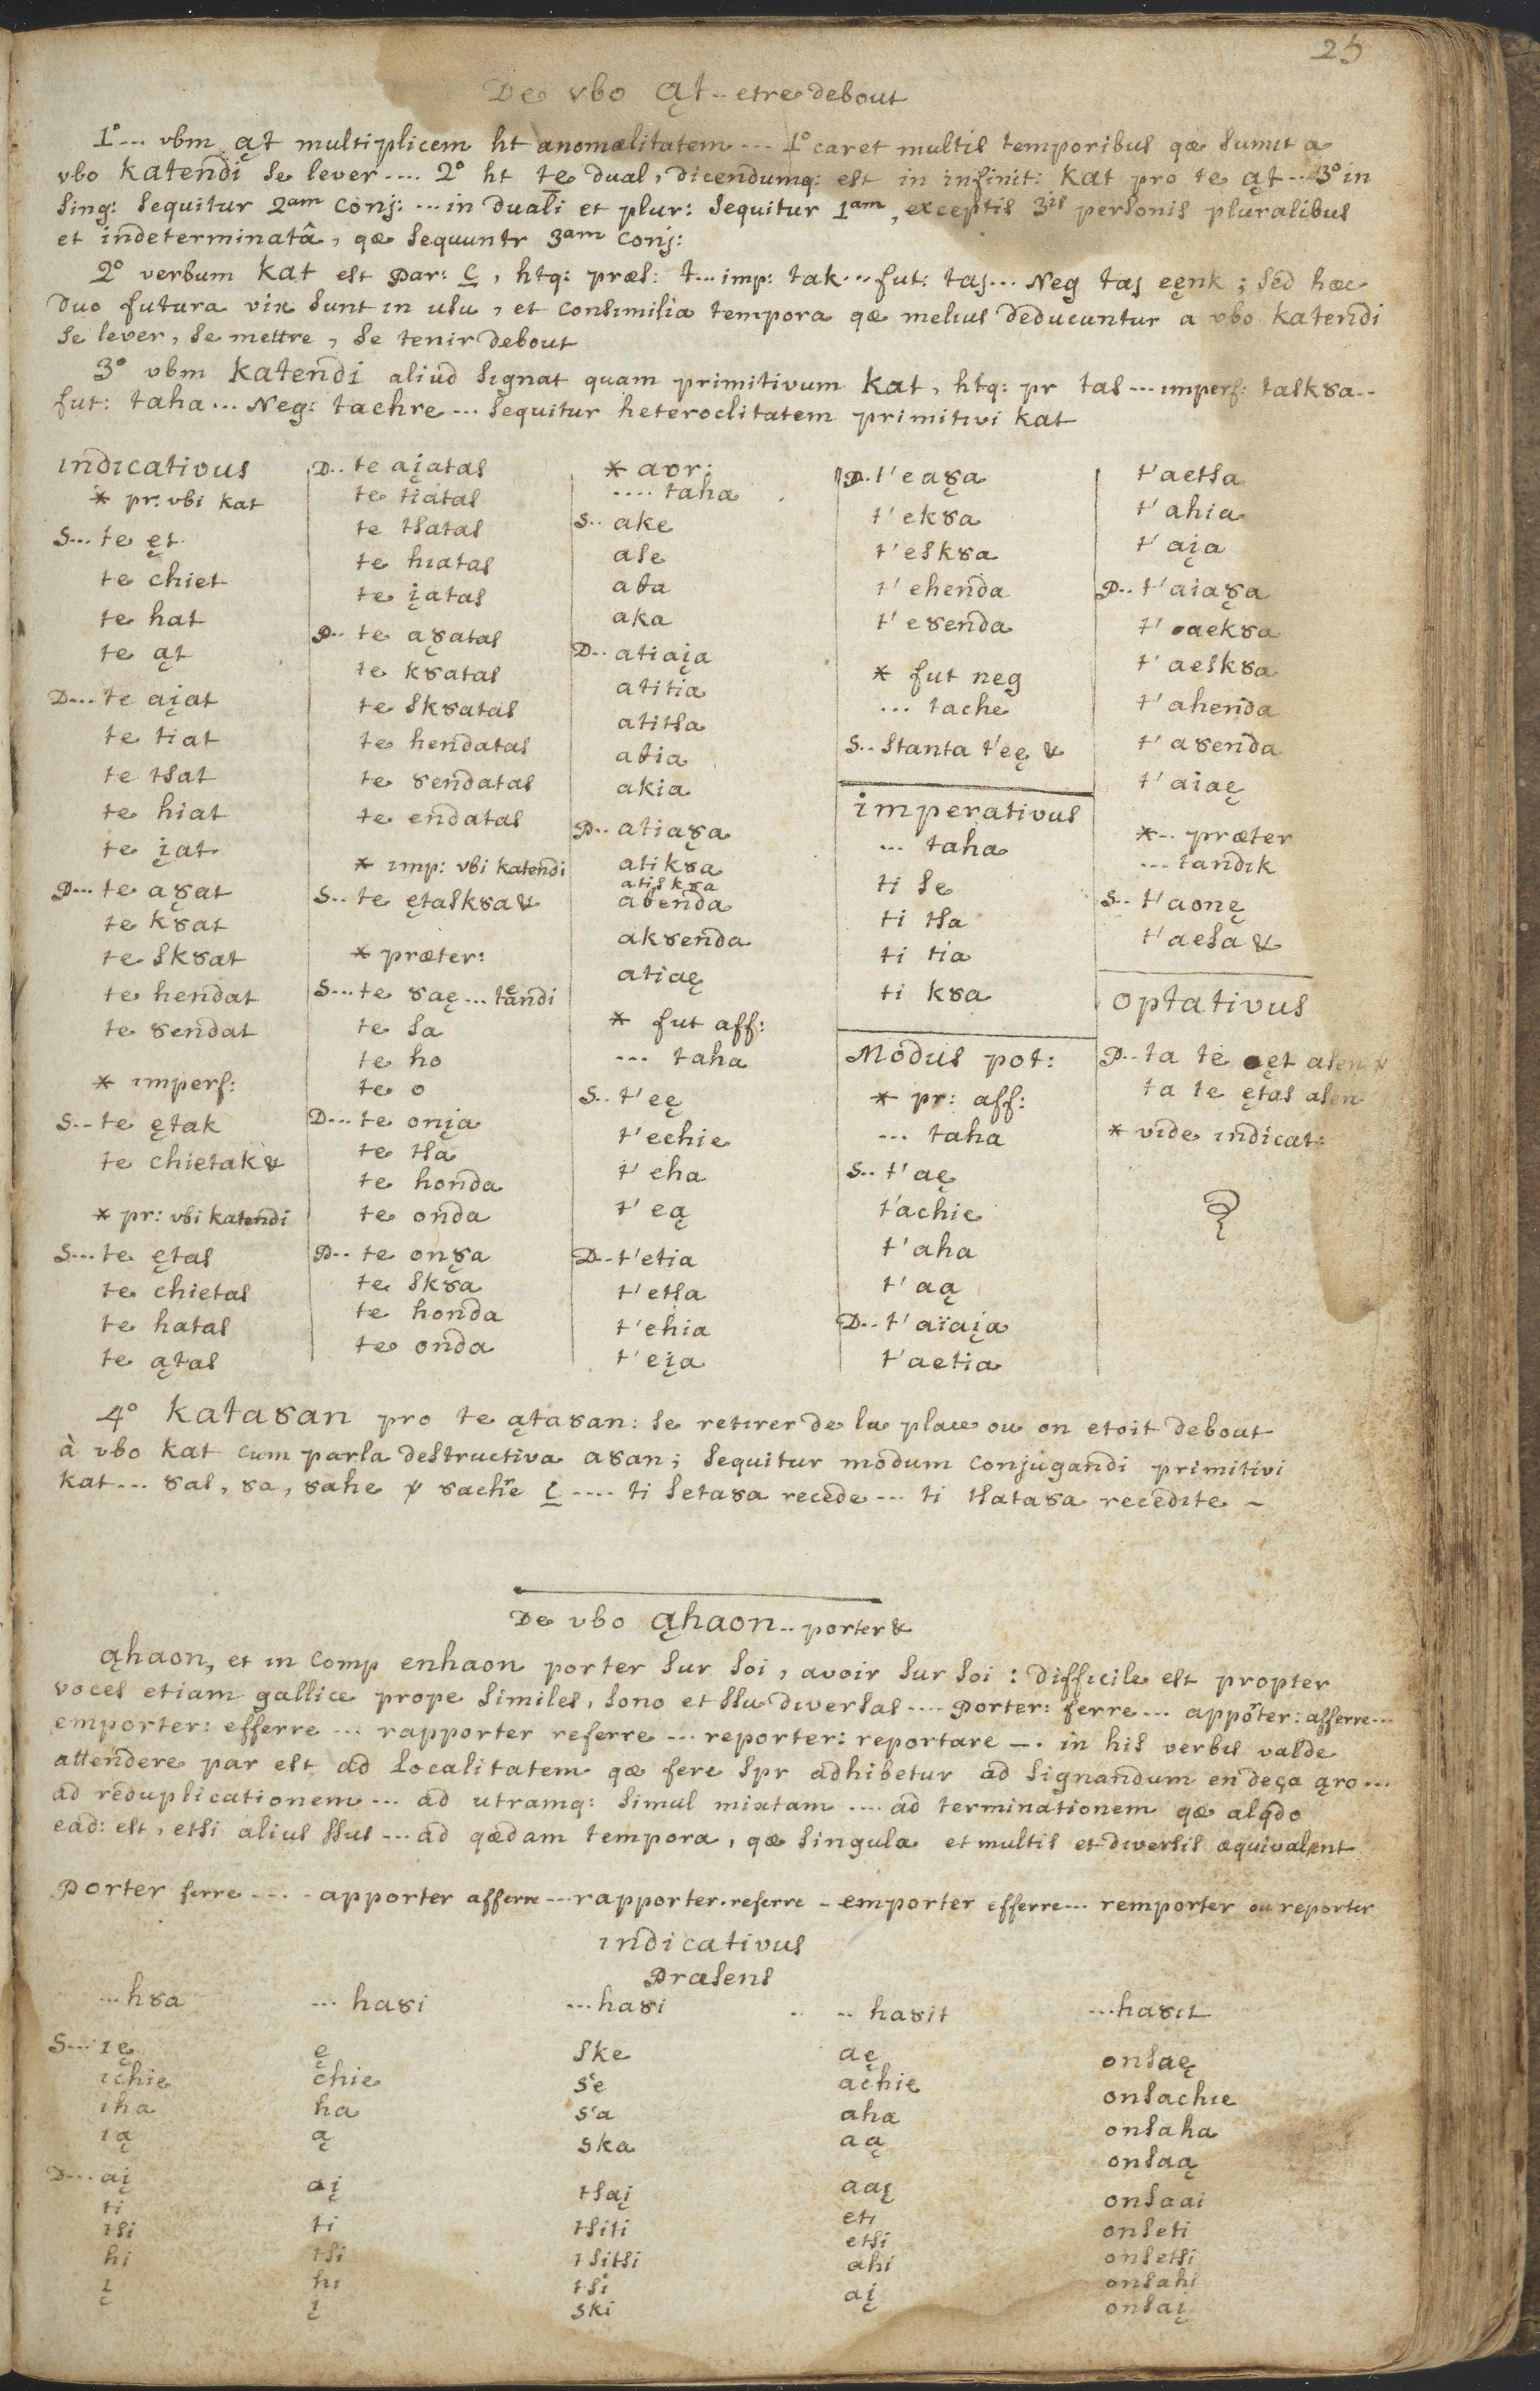 25
De vbo ąt.. etre debout
1°... vbm ąt multiplicem ht anomalitatem ... 1° caret multis temporibus qæ sumit a
vbo katendi se lever .... 2° ht te dual, dicendumq: est in infinit: kat pro te ąt... 3° in
sing: sequitur 2am conj: ... in duali et plur: sequitur 1am, exceptis 3is personis pluralibus
et indeterminatâ, qæ sequuntr 3am conj:
2° verbum kat est par: c, htq: præs: t... imp: tak... fut: tas... Neg tas eęnk; sed hæc
duo futura vix sunt in usu, et consimilia tempora qæ melius deducuntur a vbo katendi
se lever, se mettre, se tenir debout
3° vbm katendi aliud signat quam primitivum kat, htq: pr tas ... imperf: taskȣa..
fut: taha... Neg: tachre... sequitur heteroclitatem primitivi kat
indicativus
* pr: vbi kat
S... te ęt
te chiet
te hat
te ąt
D... te aįat
te tiat
te tsat
te hiat
te įat
P... te aȣat
te kȣat
te skȣat
te hendat
te ȣendat
* imperf:
S... te ętak
te chietak &
* pr: vbi katendi
S... te ętas
te chietas
te hatas
te ątas
D.. te aįatas
te tiatas
te tsatas
te hiatas
te įatas
P.. te aȣatas
te kȣatas
te skȣatas
te hendatas
te ȣendatas
te endatas
* imp: vbi katendi
S.. te ętaskȣa &
* præter:
S... te ȣaę ... tęndi
te sa
te ho
te o
D... te onįa
te tsa
te honda
te onda
P.. te onȣa
te skȣa
te honda
te onda
* aor:
.... taha
S.. ake
ase
aθa
aka
D.. atiaįa
atitia
atitsa
aθia
akia
P.. atiaȣa
atikȣa
atiskȣa
aθenda
akȣenda
atiaę
* fut aff:
... taha
S.. t'eę
t'echie
t'eha
t'eą
D.. t'etia
t'etsa
t'ehia
t'eįa
P. t'eaȣa
t'ekȣa
t'eskȣa
t'ehenda
t'eȣenda
* fut neg
... tache
S.. stanta t'eę &
imperativus
... taha
ti se
ti tsa
ti tia
ti kȣa
Modus pot:
* pr: aff:
... taha
S.. t'aę
t'achie
t'aha
t'aą
D.. t'aïaįa
t'aetia
t'aetsa
t'ahia
t'aįa
P.. t'aiaȣa
t'aekȣa
t'aeskȣa
t'ahenda
t'aȣenda
t'aiaę
*.. præter
... tandik
S.. t'aonę
t'aesa &
optativus
P.. ta te ęt asen &
ta te ętas asen
* vide indicat:
4° kataȣan pro te ątaȣan: se retirer de la place ou on etoit debout
à vbo kat cum parla destructiva aȣan; sequitur modum conjugandi primitivi
kat... ȣas, ȣa, ȣahe & ȣachre c .... ti setaȣa recede ... ti tsataȣa recedite –
De vbo ąhaon.. porter &
ąhaon, et in comp enhaon porter sur soi, avoir sur soi: difficile est propter
voces etiam gallice prope similes, sono et ssu diversas .... Porter: ferre ... apporter: afferre...
emporter: efferre ... rapporter referre ... reporter: reportare –. in his verbis valde
attendere par est ad Localitatem qæ fere spr adhibetur ad signandum en deça ąro...
ad reduplicationem ... ad utramq: simul mixtam .... ad terminationem qæ alqdo
ead: est, etsi alius ssus ... ad qædam tempora, qæ singula et multis et diversis æquivalent
Porter ferre ... - apporter afferre ... rapporter. referre - emporter efferre... remporter ou reporter
indicativus
Præsens
...hȣa ...haȣi ...haȣi ...haȣit ...haȣit
S... ię ę ske aę onsaę
ichie chie s'e achie onsachie
iha ha s'a aha onsaha
ią ą ska aą onsaą
D... aį aį tsaį aaį onsaai
ti ti tsiti eti onseti
tsi tsi tsitsi etsi onsetsi
hi hi tsi ahi onsahi
į į ski aį onsaį